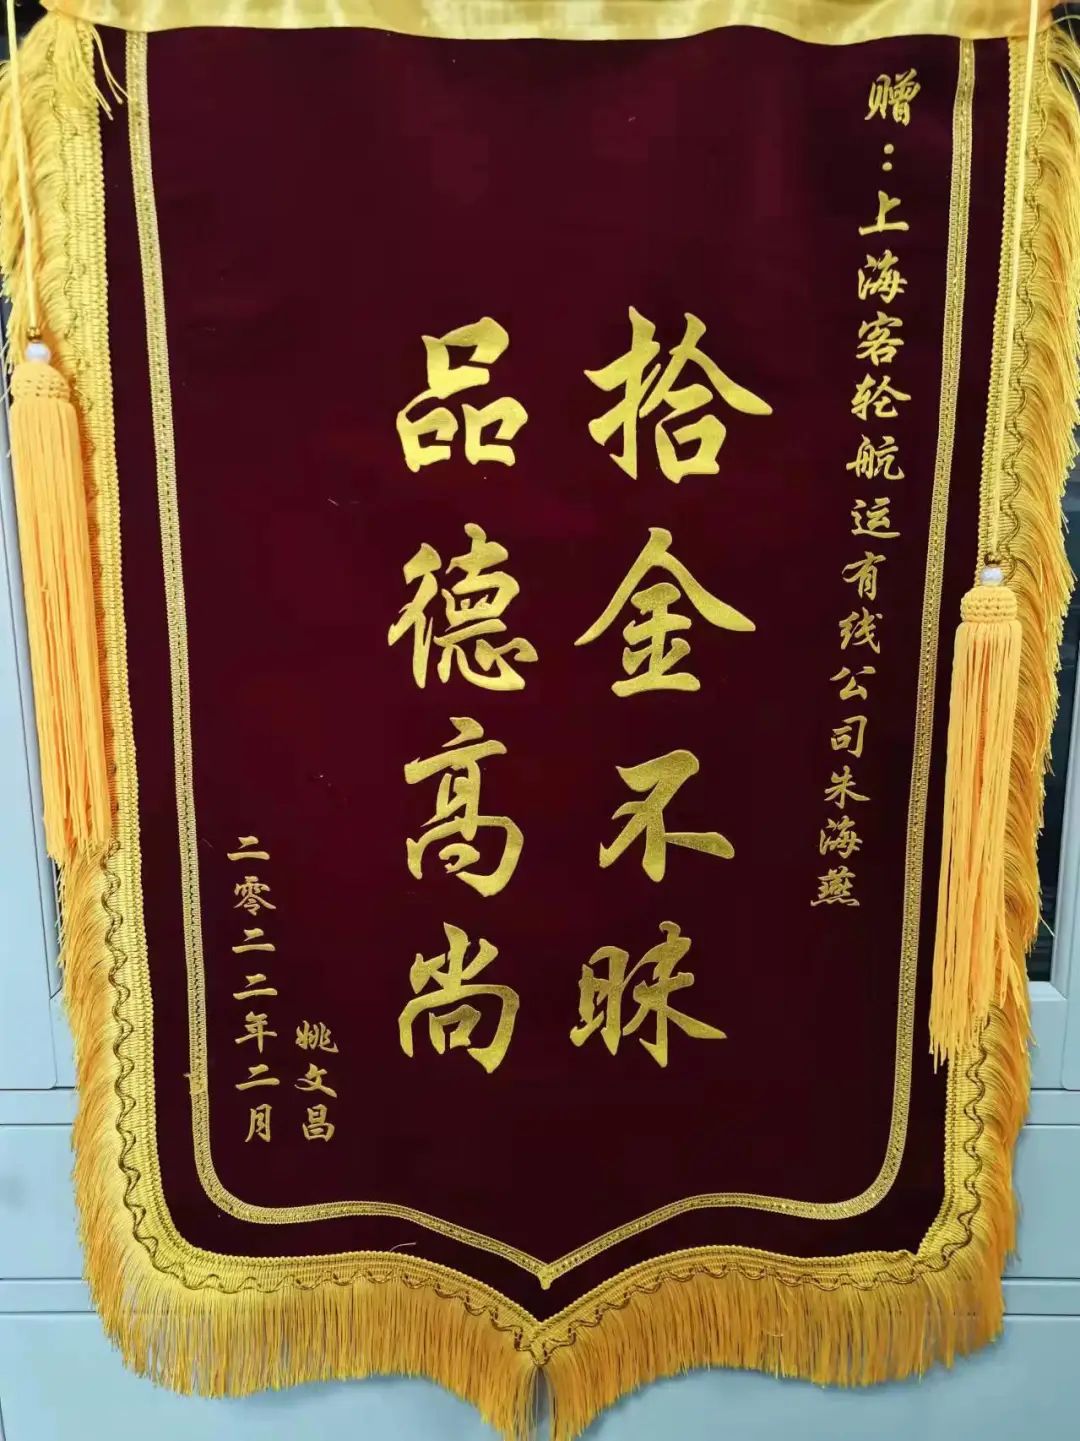 赠：上海客轮航运有线公司朱海燕
拾金不昧
品德高尚
姚文昌
二零二二年二月